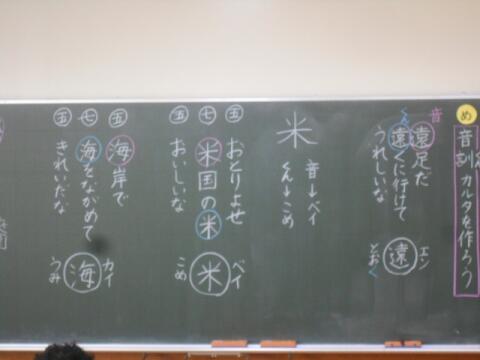 め
音訓カルタを作ろう
音
くん
遠足だ
遠くに行けて
うれしいな
エン
遠
とおく
米
音→ベイ
くん→こめ
五
おとりよせ
七
米国の米
五
おいしいな
ベイ
米
こめ
五
海岸で
七
海をながめて
五
きれいだな
カイ
海
うみ